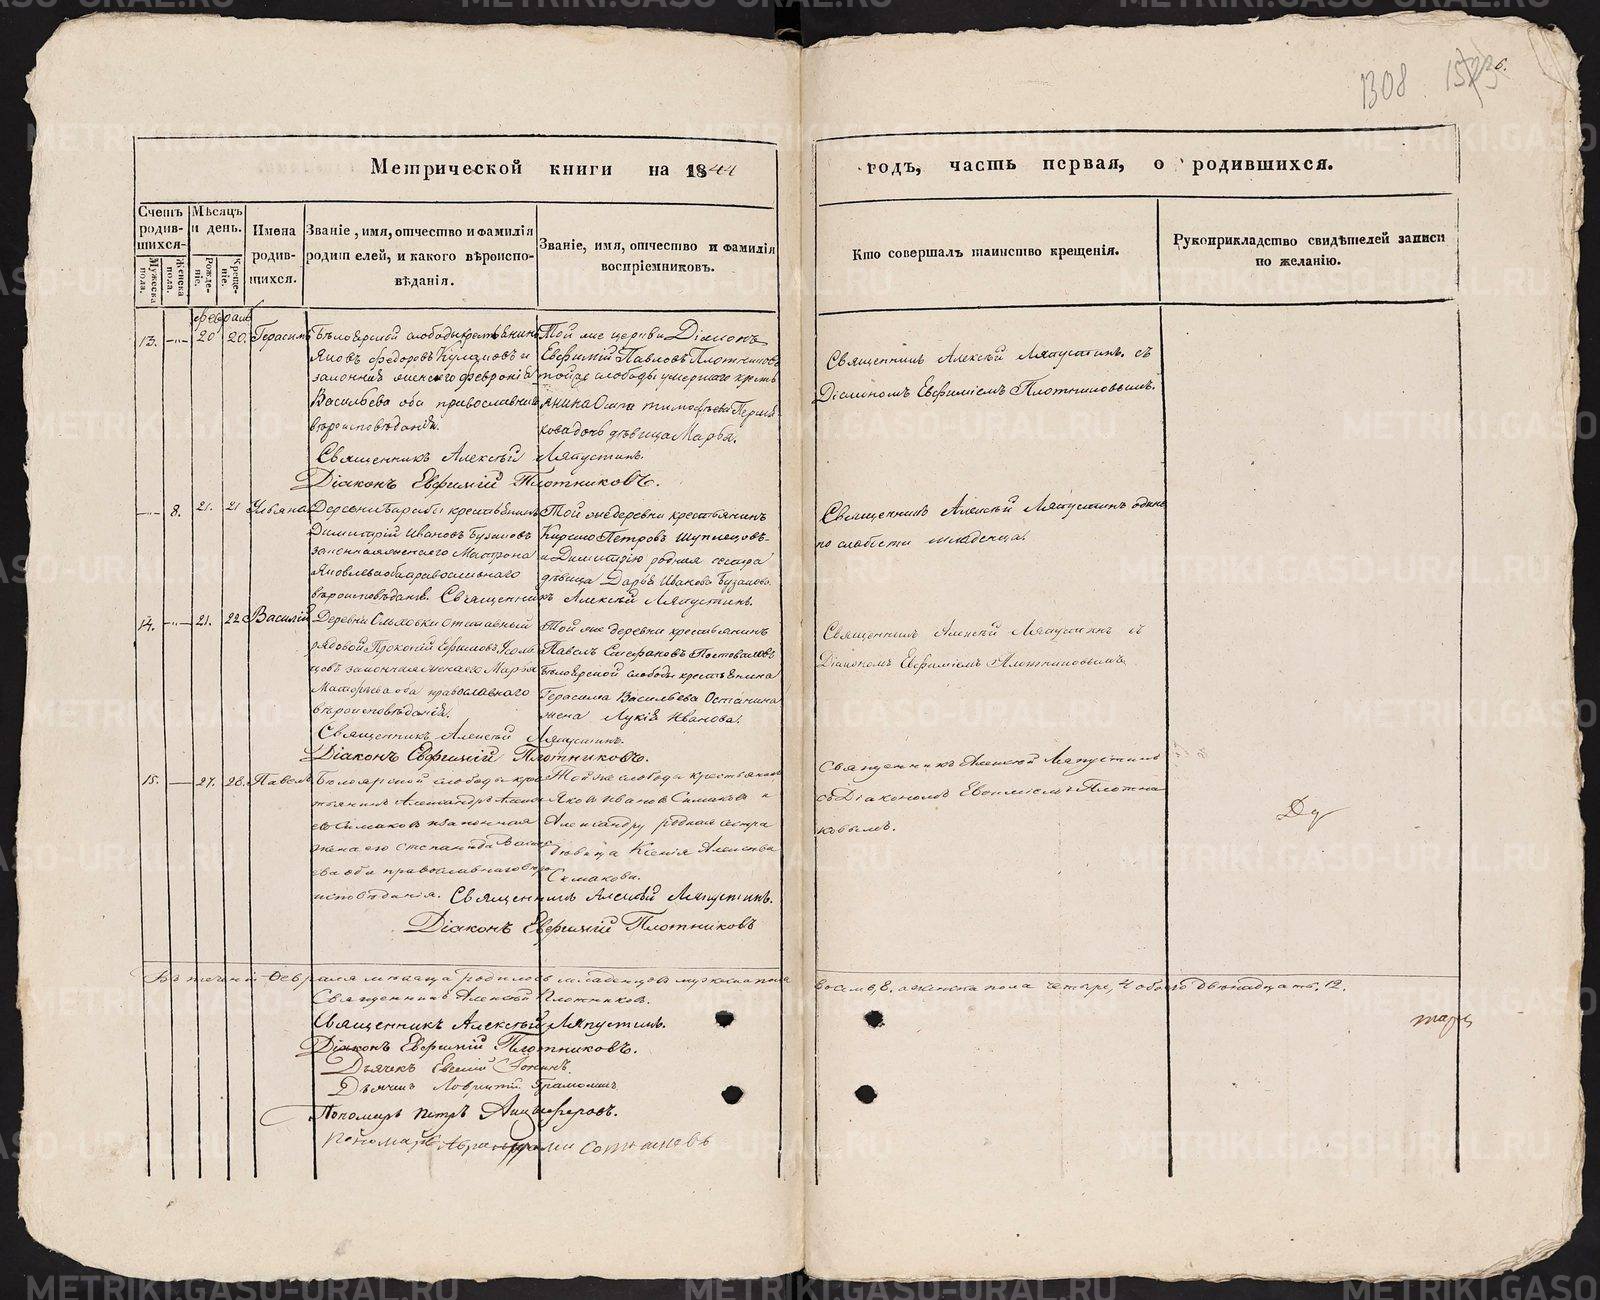 1308 1523 26.
Метрической книги на 1844
годъ, часть первая, о родившихся.
Счетъ родившихся.
Мужеска пола.
Женска пола.
Мѣсяцъ и день.
Рожденіе.
Крещеніе.
Имена родившихся.
Званіе, имя, отчество и фамилія родителей, и какого вѣроисповѣданія.
Званіе, имя, отчество и фамилія воспріемниковъ.
Кто совершалъ таинство крещенія.
Рукоприкладство свидѣтелей записи по желанію.
февраль
13. 20 20. Герасимъ
Бѣлоярской слободы крестьянинъ
Яковъ Федоровъ и
законная жена его Феврония
Васильева оба православнаго
вѣроисповѣданія.
Той же церкви Діаконъ
Евфимій Павловъ Плотниковъ
той же слободы умершаго кресть
янина Тимофеева
дочь дѣвица Марѳа.
Священникъ Алексѣй Ляпустинъ. съ
Діакономъ Евфиміемъ Плотниковымъ.
Священникъ Алексѣй Ляпустинъ.
Діаконъ Евфимій Плотниковъ.
8. 21. 21 Ульяна
Деревни крестьянинъ
Димитрій Ивановъ Бузановъ
законная жена его Матрона
Яковлева оба православнаго
вѣроисповѣданія.
Той же деревни крестьянинъ
Кирило Петровъ Шуплецовъ
и Димитрію родная сестра
дѣвица Дарья Иванова Бузанова
Священникъ Алексѣй Ляпустинъ одинъ
по слабости младенца.
Священникъ Алексѣй Ляпустинъ.
14. 21. 22 Василій
Деревни Ольховки отставный
рядовой Прокопій Ефимовъ
законная жена его Марья
оба православнаго
вѣроисповѣданія.
Той же деревни крестьянинъ
Павелъ Стефановъ Постоваловъ
Бѣлоярской слободы крестьянина
Герасима Васильева Останина
жена Лукія Иванова.
Священникъ Алексѣй Ляпустинъ съ
Діакономъ Евфиміемъ Плотниковымъ.
Священникъ Алексѣй Ляпустинъ.
Діаконъ Евфимій Плотниковъ.
15. 27. 28. Павелъ
Бѣлоярской слободы крес
тьянинъ Александръ
Симаковъ и законная
жена его Степанида
оба православнаго вѣро
исповѣданія.
Той же слободы крестьянинъ
Яковъ Ивановъ Симаковъ и
Александру родная сестра
дѣвица Ксенія Алексѣева
Симакова.
Священникъ Алексѣй Ляпустинъ
съ Діакономъ Евфиміемъ Плотни
ковымъ.
Священникъ Алексѣй Ляпустинъ.
Діаконъ Евфимій Плотниковъ
Въ теченіи Февраля мѣсяца родилось младенцовъ мужеска пола
восемь, 8. а женска пола четыре, 4 обоего двѣнадцать, 12.
Священникъ Алексѣй Плотников.
Священникъ Алексѣй Ляпустинъ.
Діаконъ Евфимій Плотниковъ.
Дьячекъ Евгеній
Дьячекъ
Пономарь Петръ Анцыферовъ.
Пономарь